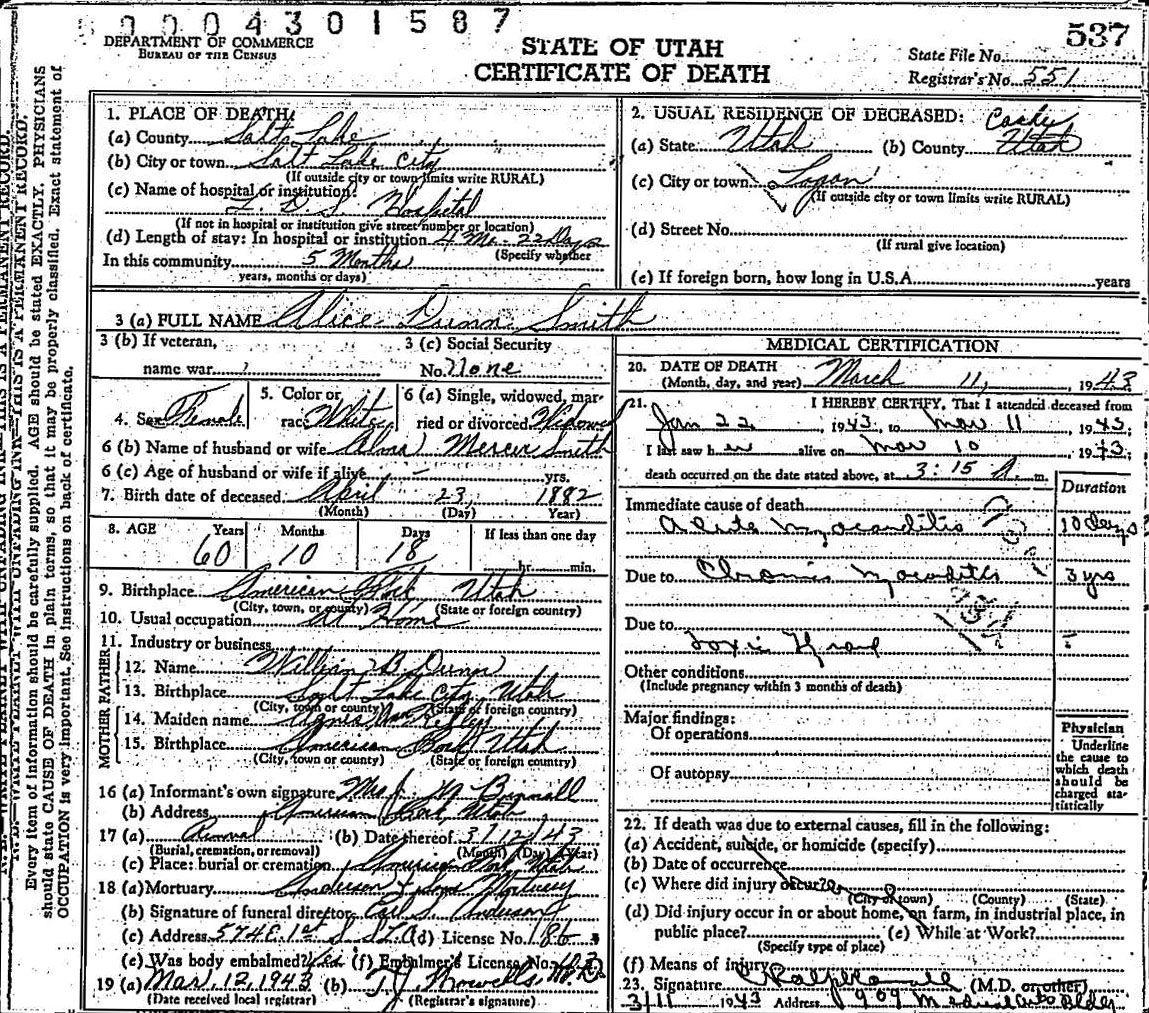 0004301587
537
DEPARTMENT OF COMMERCE
BUREAU OF THE CENSUS
STATE OF UTAH
CERTIFICATE OF DEATH
State File No.
Registrar's No. 551
N.B.—WRITE PLAINLY WITH UNFADING INK—THIS IS A PERMANENT RECORD.
Every item of information should be carefully supplied. AGE should be stated EXACTLY. PHYSICIANS
should state CAUSE OF DEATH in plain terms, so that it may be properly classified. Exact statement of
OCCUPATION is very important. See instructions on back of certificate.
1. PLACE OF DEATH:
(a) County Salt Lake
(b) City or town Salt Lake City
(If outside city or town limits write RURAL)
(c) Name of hospital or institution:
L. D. S. Hospital
(If not in hospital or institution give street number or location)
(d) Length of stay: In hospital or institution 4 Mo. 22 Days
(Specify whether
In this community 5 Months
years, months or days)
2. USUAL RESIDENCE OF DECEASED:
(a) State Utah (b) County Cache Utah
(c) City or town Logan
(If outside city or town limits write RURAL)
(d) Street No.
(If rural give location)
(e) If foreign born, how long in U.S.A. years
3 (a) FULL NAME Alice Dunn Smith
3 (b) If veteran,
name war
3 (c) Social Security
No. None
4. Sex Female
5. Color or
race White
6 (a) Single, widowed, mar-
ried or divorced Widowed
6 (b) Name of husband or wife Alma Mercer Smith
6 (c) Age of husband or wife if alive yrs.
7. Birth date of deceased April 23, 1882
(Month) (Day) Year)
8. AGE Years Months Days If less than one day
60 10 18 hr. min.
9. Birthplace American Fork Utah
(City, town, or county) (State or foreign country)
10. Usual occupation At Home
11. Industry or business
FATHER
12. Name William B. Dunn
13. Birthplace Salt Lake City, Utah
(City, town or county) (State or foreign country)
MOTHER
14. Maiden name Agnes Kelly
15. Birthplace American Fork Utah
(City, town or county) (State or foreign country)
16 (a) Informant's own signature Mrs.
(b) Address American Fork, Utah
17 (a) Removal (b) Date thereof 3/12/43
(Burial, cremation, or removal) (Month) (Day) (Year)
(c) Place: burial or cremation American Fork Utah
18 (a) Mortuary Anderson & Sons Mortuary
(b) Signature of funeral director S. Anderson
(c) Address 574 E. 1st S. (d) License No. 186
(e) Was body embalmed? Yes (f) Embalmer's License No.
19 (a) Mar. 12, 1943 (b) T. J. Howells, M.D.
(Date received local registrar) (Registrar's signature)
MEDICAL CERTIFICATION
20. DATE OF DEATH
(Month, day, and year) March 11, 1943
21. I HEREBY CERTIFY, That I attended deceased from
Jan 22, 1943, to Mar 11 1943;
I last saw her alive on Mar 10 1943;
death occurred on the date stated above, at 3:15 A. m.
Duration
Immediate cause of death
Acute Myocarditis 10 days
Due to Chronic Myocarditis 3 yrs
Due to
Toxic ?
Other conditions
(Include pregnancy within 3 months of death)
Major findings:
Of operations
Of autopsy
Physician
Underline
the cause to
which death
should be
charged sta-
tistically
22. If death was due to external causes, fill in the following:
(a) Accident, suicide, or homicide (specify)
(b) Date of occurrence
(c) Where did injury occur?
(City or town) (County) (State)
(d) Did injury occur in or about home, on farm, in industrial place, in
public place? (e) While at Work?
(Specify type of place)
(f) Means of injury
23. Signature (M.D. or other)
3/11 1943 Address 909 Medical Arts Bldg